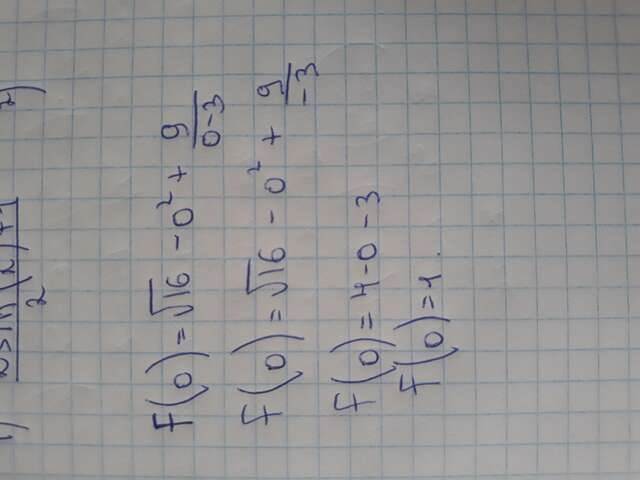 F(0) = √16 - 0² + 9/(0-3)
F(0) = √16 - 0² + 9/-3
F(0) = 4 - 0 - 3
F(0) = 1.